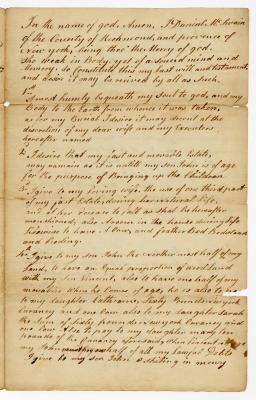 In the name of god, Amen, I, Daniel McSwain
of the County of Richmond, and province of
New york, being thro' the Mercy of god.
tho weak in Body, yet of a sound mind and
memory do Constitute this my last will and testament,
and desire it may be received by all as such.
1st
I most humbly bequeath my Soul to god, and my
Body to the Earth from whence it was taken,
as for my Burial I desire it may decent at the
discretion of my dear wife and my Executors
hereafter named
2. I desire that my fast and movable Estate,
may remain as it is untill my Son John is of age
for the purpose of Bringing up the Children
3. I give to my loving wife, the use of one third part
of my fast Estate, during her natural life,
and at her decease to fall as shall be hereafter
mentioned, also a room in the house during life
likewise to have A Cow, and feather bed Bedstead
and Beding.
4. I give to my son John the north most half of my
land, to have an Equal proportion of wood land
with my son Vincent, also to have one half of my
movables when he comes of age, he is also to
to my daughter Catherine, Sixty Pounds new york
Curancy and one Cow also to my daughter Sarah
the Sum of Sixty pounds new york Curancy and
one Cow Also to pay to my daughter
pounds of the Curancy aforesaid, When Vincent
my John half of all my lawful Debts
I give to my son John in money